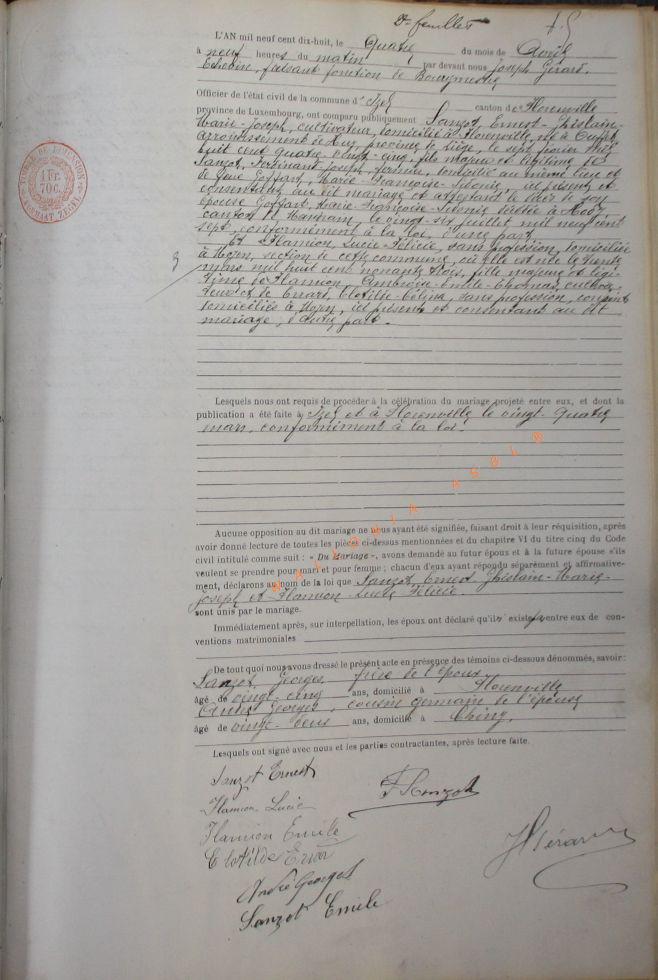 2e feuillet
L'AN mil neuf cent dix-huit, le Quatre du mois de Avril
à neuf heures du matin par devant nous Joseph Gérard,
Echevin, faisant fonction de Bourgmestre
Officier de l'état civil de la commune d'Izel canton de Florenville
province de Luxembourg, ont comparu publiquement Sanzot, Ernest-Ghislain-
Marie-Joseph, cultivateur, domicilié à Florenville, né à
arrondissement de Huy, province de Liège, le sept
huit cent quatre-vingt-cinq, fils majeur et légitime de
Sanzot, Ferdinand Joseph, domicilié au même lieu et
de feue Goffart, Marie-Françoise- ici présent et
consentant au dit mariage et attestant le décès de son
épouse Goffart, Marie-Françoise- décédée à
canton de le vingt-six juillet mil neuf cent
sept, conformément à la loi, d'une part
Et Flamion Lucie-Félicie, sans profession, domiciliée
à Moyen, section de cette commune, où elle est née le trente
mars mil huit cent nonante trois, fille majeure et légi-
time de Flamion, Ambroise-Emile-Thomas, cultiva-
teur et de Evrard, Clotilde- sans profession, conjoints
domiciliés à Moyen, ici présents et consentant au dit
mariage, d'autre part.
Lesquels nous ont requis de procéder à la célébration du mariage projeté entre eux, et dont la
publication a été faite à Izel et à Florenville le vingt-quatre
mars, conformément à la loi.
WALLONIA ASBL ®
Aucune opposition au dit mariage ne nous ayant été signifiée, faisant droit à leur réquisition, après
avoir donné lecture de toutes les pièces ci-dessus mentionnées et du chapitre VI du titre cinq du Code
civil intitulé comme suit : « Du Mariage », avons demandé au futur époux et à la future épouse s'ils
veulent se prendre pour mari et pour femme ; chacun d'eux ayant répondu séparément et affirmative-
ment, déclarons au nom de la loi que Sanzot, Ernest Ghislain-Marie-
Joseph et Flamion-Lucie Félicie.
sont unis par le mariage.
Immédiatement après, sur interpellation, les époux ont déclaré qu'il n'existe pas entre eux de con-
ventions matrimoniales
De tout quoi nous avons dressé le présent acte en présence des témoins ci-dessous dénommés, savoir :
Sanzot, Georges, frère de l'époux
âgé de vingt-cinq ans, domicilié à Florenville
André Georges, cousin germain de l'épouse
âgé de vingt-deux ans, domicilié à Chiny.
Lesquels ont signé avec nous et les parties contractantes, après lecture faite.
Sanzot Ernest
F Sanzot
Flamion Lucie
Flamion Emile
J Gérard
Clotilde Evrard
André Georges
Sanzot Emile
TIMBRE DE DIMENSION
1 Fr.
70c.